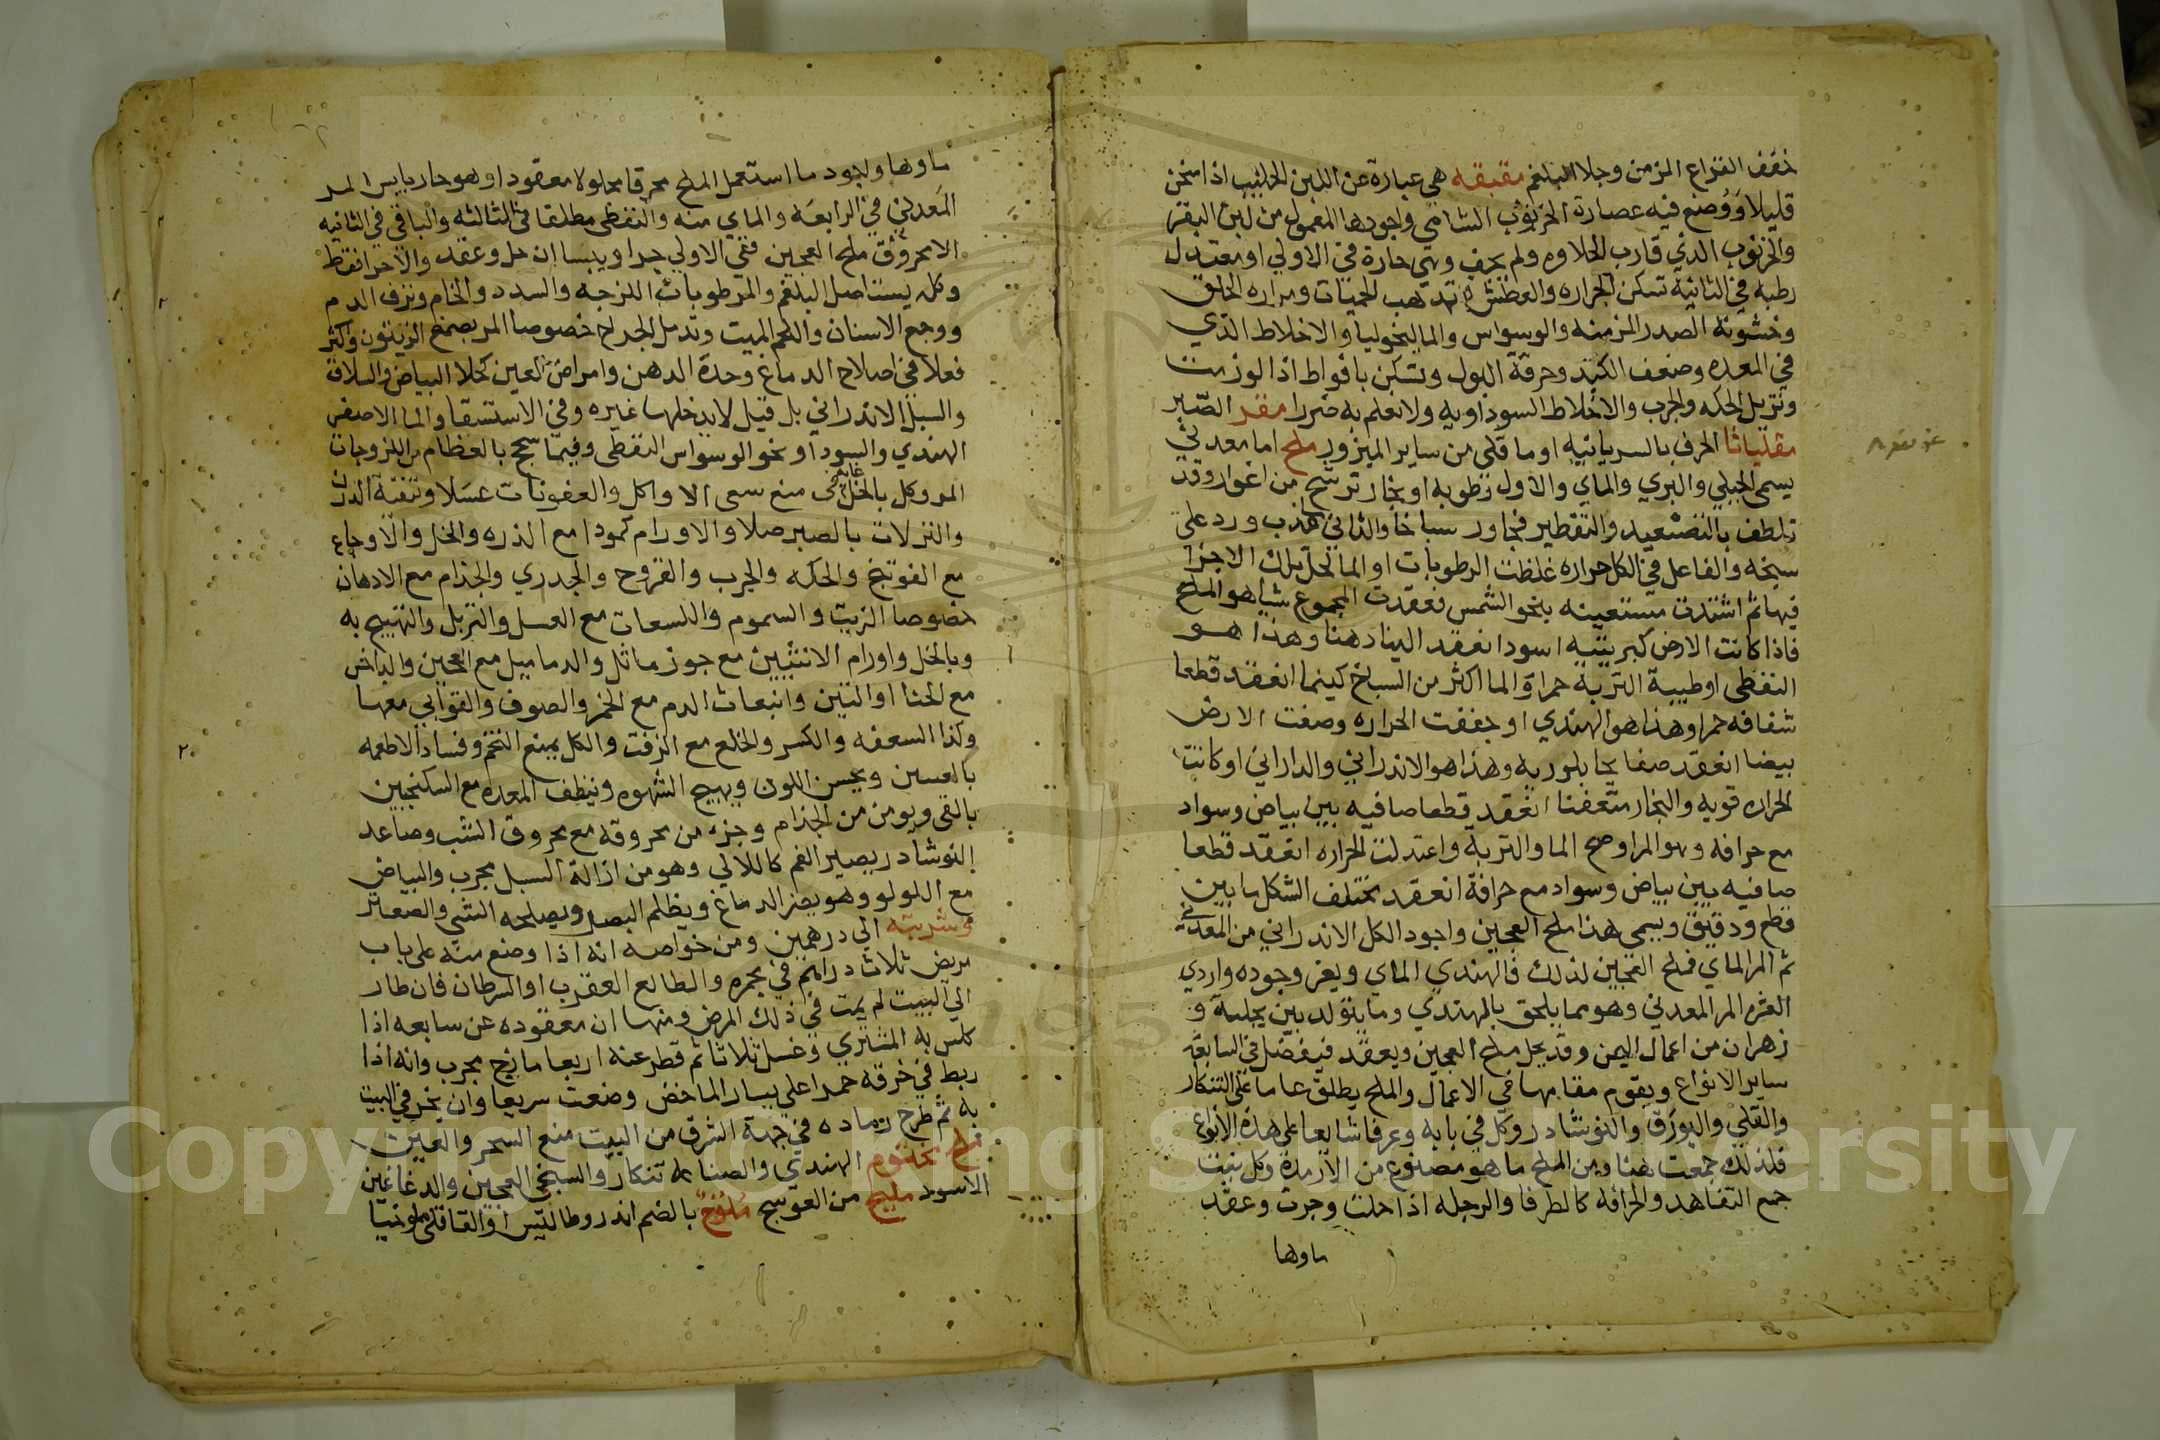 خفف القراع المزمن وجلا البلغم مقبقه هي عبارة عن اللبن الحليب اذا سخن
قليلا ووضع فيه عصارة الخرنوب الشامي واجودها المعمول من لبن البقر
والخرنوب الذي قارب الحلاوه ولم يجف وهي حارة في الاولي او معتدل
رطبه في الثانية تسكن الحراره والعطش و تذهب الحميات ومراره الحلق
وخشونة الصدر المزمنه والوسواس والماليخوليا والاخلاط الذي
في المعده وضعف الكبد وحرقة البول وتسكن بافراط اذا لوزمت
وتزيل الحكه والجرب والاخلاط السوداويه ولا نعلم به ضررا مقر الصبر
مقلياثا الحرف بالسريانيه او ما قلي من ساير البزور ملح اما معدني
يسمي الجبلي والبري والماي والاول رطوبه او بخار ترشح من اغوار وقد
تلطف بالتصعيد والتقطير فجاور سباخا والثاني عذب ورد علي
سبخه والفاعل في الكل حراره غلظت الرطوبات او الما لتحل تلك الاجزا
فيها ثم اشتدت مستعينه بنحو الشمس فعقدت المجموع شيا هو الملح
فاذا كانت الارض كبريتيه اسودا انعقد الينا دهنا وهذا هو
النفطي او طيبة التربة حمراة والما اكثر من السباخ كيفما انعقد قطعا
شفافه حمرا وهذا هو الهندي او جففت الحراره وصفت الارض
بيضا انعقد صفايحا بلوريه وهذا هو الاندراني والداراني او كانت
الحراره قويه والبخار متعفنا انعقد قطعا صافيه بين بياض وسواد
مع حرافه وهو المر او صح الما والتربة واعتدلت الحراره انعقد قطعا
صافيه بين بياض وسواد مع حرافة انعقد مختلف الشكل ما بين
قطع ودقيق ويسمي هذا ملح العجين واجود الكل الاندراني من المعدني
ثم المر الماي فملح العجين لذلك فالهندي الماي ويعز وجوده واردي
العثره المر المعدني وهو مما يلحق بالهندي وما يتولد بين بجيلة و
زهران من اعمال اليمن وقد يحل ملح العجين ويعقد فيفضل في السابقه
ساير الانواع ويقوم مقامها في الاعمال والملح يطلق عاما علي التنكار
والقلي والبورق والنوشادر وكل في بابه وعرفا شايعا علي هذه الانواع
فلذلك جمعت هنا ومن الملح ما هو مصنوع من الارمدة وكل نبت
جمع التفاهه والحرافه كالطرفا والرجله اذا حلت وجرت وعقد
ماوها
ماوها واجود ما استعمل الملح محرقا محلولا معقودا وهو حار يابس المر
المعدني في الرابعه والماي منه والنفطي مطلقا في الثالثه والباقي في الثانيه
الا محروق ملح العجين ففي الاولي حرا ويبسا ان حل وعقد والاحرا فقط
وكله يستاصل البلغم والرطوبات اللزجه والسدد والخام ونزف الدم
ووجع الاسنان واللحم الميت وتدمل الجراح خصوصا المر بصمغ الزيتون واكثر
فعلا في صلاح الدماغ وحدة الذهن وامراض العين كحلا البياض والسلاق
والسبل الاندراني بل قيل لا يدخلها غيره وفي الاستسقا والما الاصفر
الهندي والسودا ونحو الوسواس النفطي وفيما سجح بالعظام من اللزوجات
المر وكل بالخل غايته في منع سعي الاواكل والعفونات غسلا وتنقية الدرن
والنزلات بالصبر صلا والاورام كمودا مع الذره والخل والاوجاع
مع الفوتنج والحكه والجرب والقروح والجدري والجذام مع الادهان
خصوصا الزيت والسموم واللسعات مع العسل والتربل والتهيج به
وبالخل واورام الانثيين مع جوز ماثل والدماميل مع العجين والداحس
مع الحنا او التين وانبعاث الدم مع الخمر والصوف والقوابي معها
وكذا السعفه والكسر والخلع مع الزفت والكل يمنع التخم وفساد الاطعمه
بالعسين ويحسن اللون ويهيج الشهوه وينظف المعده مع السكنجبين
بالقي ويومن من الجذام وجزء من محروقه مع محروق الشب وصاعد
النوشادر يصير الفم كاللالي وهو من ازالة السبل مجرب والبياض
مع اللولو وهو يضر الدماغ ويظلم البصر ويصلحه الشي والصعتر
وشربته الي درهمين ومن خواصه انه اذا وضع منه علي باب
مريض ثلاث دراهم في مجمره والطالع العقرب او السرطان فان طار
الي البيت لم يمت في ذلك المرض ومنها ان معقوده عن سابعه اذا
كلس به المشتري وغسل ثلاثا ثم قطر عنه اربعا مازج مجرب وانه اذا
ربط في خرقه حمرا علي يسار الماخض وضعت سريعا وان بخر في البيت
به ثم طرح رماده في جهة الشرق من البيت منع السحر والعين
ملح مختوم الهندي والصناعه تنكار والسبخي العجين والدغاغين
الاسود مليح من العوسج ملوخ بالضم اندروطاليس او القاقلي ملوخيا